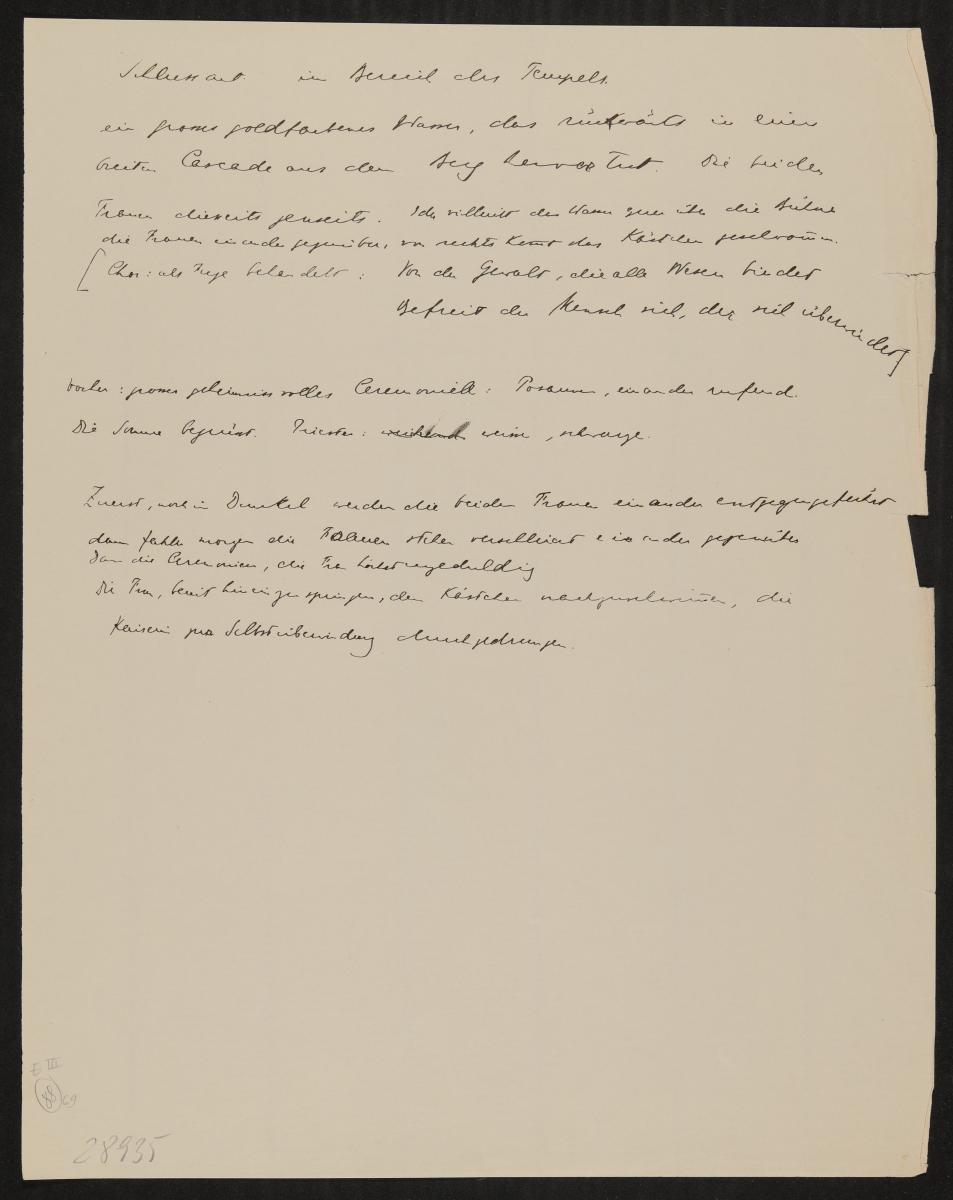 Schlussact. im Bereich des Tempels.
ein grosses goldfarbenes Wasser, das rückwärts in einer
breiten Cascade aus dem Berg hervor Tritt. Die beiden
Frauen diesseits jenseits. Oder vielleicht das Wasser quer über die Bühne
die Frauen einander gegenüber, von rechts kommt das Kästchen geschwommen.
[Chor: als Fuge behandelt: Von der Gewalt, die alle Wesen bindet
Befreit der Mensch sich, der sich überwindet]
vorher: grosses geheimnissvolles Ceremoniell: Posaunen, einander rufend.
Die Sonne begrüsst. Priester: weisse, schwarze.
Zuerst, noch im Dunkel werden die beiden Frauen einander entgegengeführt
dann fahler morgen die Frauen stehen verschleiert einander gegenüber
Dann die Ceremonien, die Frau höchst ungeduldig
Die Frau, bereit hineinzuspringen, dem Kästchen nachzuschwimmen, die
Kaiserin zur Selbstüberwindung durchgedrungen.
E III
88 69
28935